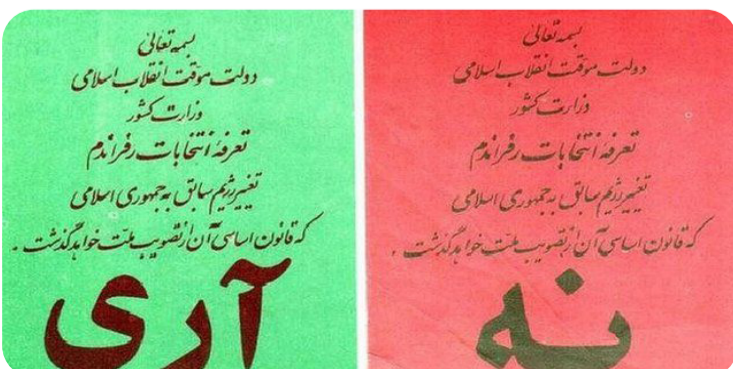 بسمه تعالی
دولت موقت انقلاب اسلامی
وزارت کشور
تعرفهٔ انتخابات رفراندم
تغییر رژیم سابق به جمهوری اسلامی
که قانون اساسی آن از تصویب ملت خواهد گذشت .
آری
بسمه تعالی
دولت موقت انقلاب اسلامی
وزارت کشور
تعرفهٔ انتخابات رفراندم
تغییر رژیم سابق به جمهوری اسلامی
که قانون اساسی آن از تصویب ملت خواهد گذشت .
نه